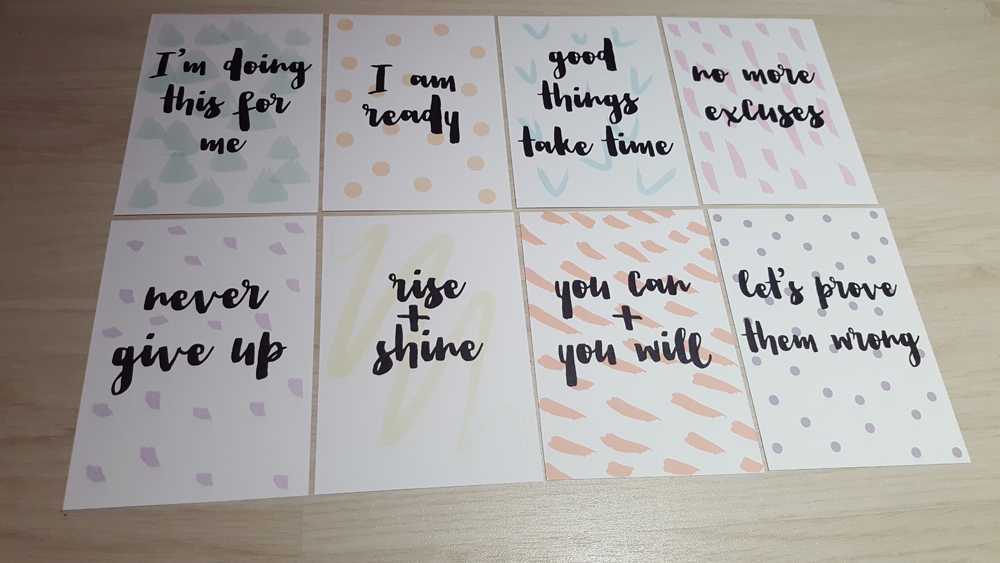 I'm doing
this for
me
I am
ready
good
things
take time
no more
excuses
never
give up
rise
+
shine
you can
+
you will
let's prove
them wrong